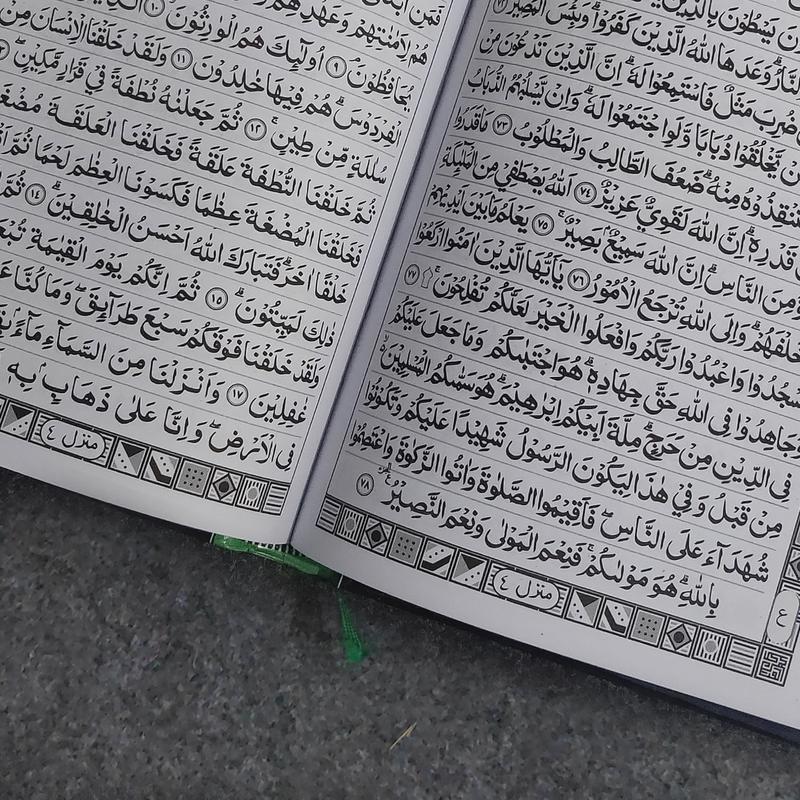 يَسْطُوْنَ بِالَّذِيْنَ
النَّارُ وَعَدَهَا اللّٰهُ الَّذِيْنَ كَفَرُوْا وَبِئْسَ الْمَصِيْرُ ٧٢
ضُرِبَ مَثَلٌ فَاسْتَمِعُوْا لَهٗ اِنَّ الَّذِيْنَ تَدْعُوْنَ مِنْ
يَّخْلُقُوْا ذُبَابًا وَّلَوِ اجْتَمَعُوْا لَهٗ وَاِنْ يَّسْلُبْهُمُ الذُّبَابُ
يَسْتَنْقِذُوْهُ مِنْهُ ضَعُفَ الطَّالِبُ وَالْمَطْلُوْبُ ٧٣ مَا قَدَرُوا
قَدْرِهٖ اِنَّ اللّٰهَ لَقَوِيٌّ عَزِيْزٌ ٧٤ اَللّٰهُ يَصْطَفِيْ مِنَ الْمَلٰٓئِكَةِ
وَمِنَ النَّاسِ اِنَّ اللّٰهَ سَمِيْعٌۢ بَصِيْرٌ ٧٥ يَعْلَمُ مَا بَيْنَ اَيْدِيْهِمْ
خَلْفَهُمْ وَاِلَى اللّٰهِ تُرْجَعُ الْاُمُوْرُ ٧٦ يٰٓاَيُّهَا الَّذِيْنَ اٰمَنُوا ارْكَعُوْا
وَاسْجُدُوْا وَاعْبُدُوْا رَبَّكُمْ وَافْعَلُوا الْخَيْرَ لَعَلَّكُمْ تُفْلِحُوْنَ ٧٧
وَجَاهِدُوْا فِي اللّٰهِ حَقَّ جِهَادِهٖ هُوَ اجْتَبٰىكُمْ وَمَا جَعَلَ عَلَيْكُمْ
فِى الدِّيْنِ مِنْ حَرَجٍ مِلَّةَ اَبِيْكُمْ اِبْرٰهِيْمَ هُوَ سَمّٰىكُمُ الْمُسْلِمِيْنَ
مِنْ قَبْلُ وَفِيْ هٰذَا لِيَكُوْنَ الرَّسُوْلُ شَهِيْدًا عَلَيْكُمْ وَتَكُوْنُوْا
شُهَدَآءَ عَلَى النَّاسِ فَاَقِيْمُوا الصَّلٰوةَ وَاٰتُوا الزَّكٰوةَ وَاعْتَصِمُوْا
بِاللّٰهِ هُوَ مَوْلٰىكُمْ فَنِعْمَ الْمَوْلٰى وَنِعْمَ النَّصِيْرُ ٧٨
ع
منزل ٤
فَمَنِ ابْتَغٰى
هُمْ لِاَمٰنٰتِهِمْ وَعَهْدِهِمْ
يُحَافِظُوْنَ ٩ اُولٰٓئِكَ هُمُ الْوٰرِثُوْنَ ١٠ الَّذِيْنَ
الْفِرْدَوْسَ هُمْ فِيْهَا خٰلِدُوْنَ ١١ وَلَقَدْ خَلَقْنَا الْاِنْسَانَ مِنْ
سُلٰلَةٍ مِّنْ طِيْنٍ ١٢ ثُمَّ جَعَلْنٰهُ نُطْفَةً فِيْ قَرَارٍ مَّكِيْنٍ
ثُمَّ خَلَقْنَا النُّطْفَةَ عَلَقَةً فَخَلَقْنَا الْعَلَقَةَ مُضْغَةً
فَخَلَقْنَا الْمُضْغَةَ عِظٰمًا فَكَسَوْنَا الْعِظٰمَ لَحْمًا ثُمَّ
خَلْقًا اٰخَرَ فَتَبَارَكَ اللّٰهُ اَحْسَنُ الْخٰلِقِيْنَ ١٤ ثُمَّ
ذٰلِكَ لَمَيِّتُوْنَ ١٥ ثُمَّ اِنَّكُمْ يَوْمَ الْقِيٰمَةِ
وَلَقَدْ خَلَقْنَا فَوْقَكُمْ سَبْعَ طَرَآئِقَ وَمَا كُنَّا
غٰفِلِيْنَ ١٧ وَاَنْزَلْنَا مِنَ السَّمَآءِ مَآءًۢ
فِى الْاَرْضِ وَاِنَّا عَلٰى ذَهَابٍۢ بِهٖ
منزل ٤